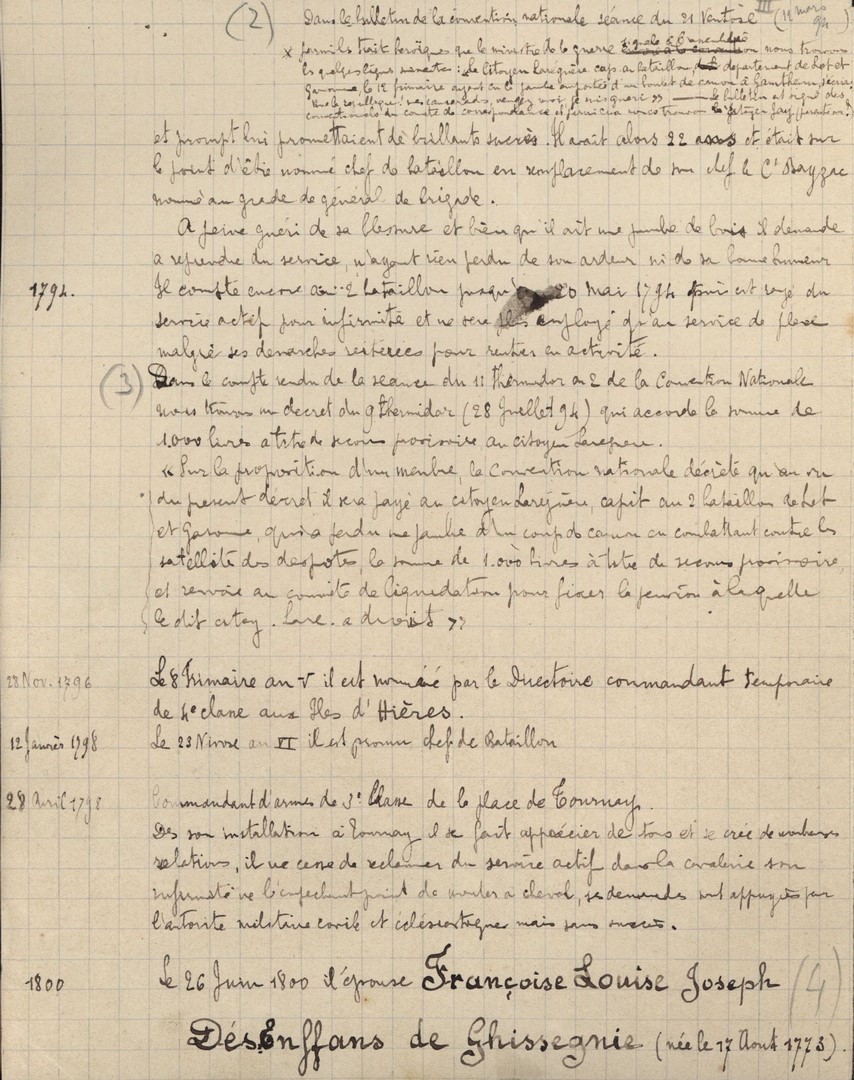 (2) Dans le bulletin de la convention nationale séance du 21 Ventôse III (12 mars 94)
x parmi les traits héroïques que le ministre de la guerre signale à l'assemblée nous trouvons
les quelques lignes suivantes : Le citoyen Laregnère cap. au bataillon du département de Lot et
Garonne, le 12 frimaire ayant eu la jambe emportée d'un boulet de canon à
Vive la république ! mes camarades, vengez moi je suis guéri » — le bulletin est signé des
conventionnels du comité de correspondance et parmi eux nous trouvons le citoyen Jay
et prompt lui promettaient de brillants succès. Il avait alors 22 ans et était sur
le point d'être nommé chef de bataillon en remplacement de son chef le Ct Bayzac
nommé au grade de général de brigade.
A peine guéri de sa blessure et bien qu'il ait une jambe de bois il demande
a reprendre du service, n'ayant rien perdu de son ardeur ni de sa bonne humeur
1794. Il compte encore au 2 bataillon jusqu' 20 Mai 1794 puis est rayé du
service actif pour infirmité et ne sera plus employé qu'au service de place
malgré ses démarches réitérées pour rentrer en activité.
(3) Dans le compte rendu de la séance du 11 thermidor an 2 de la Convention Nationale
nous trouvons un decret du 9 thermidor (28 Juillet 94) qui accorde la somme de
1.000 livres à titre de secours provisoire au citoyen Laregnere.
« Sur la proposition d'un membre, la Convention nationale décrète qu'au vu
du présent décret il sera payé au citoyen Laregnère, capit au 2 bataillon de Lot
et Garonne, qui a perdu une jambe d'un coup de canon en combattant contre les
satellites des despotes, la somme de 1.000 livres à titre de secours provisoire,
et renvoie au comité de liquidation pour fixer la pension à laquelle
le dit citoy. Lare. a droit »
28 Nov. 1796 Le 8 Frimaire an V il est nommé par le Directoire commandant temporaire
de 4e classe aux Iles d'Hières.
12 Janvier 1798 Le 23 Nivose an VI il est promu chef de Bataillon
28 Avril 1798 Commandant d'armes de 3e Classe de la place de Tournay.
Dès son installation à Tournay il se fait apprécier de tous et se crée de nombreuses
relations, il ne cesse de réclamer du service actif dans la cavalerie son
infirmité ne l'empêchant point de monter à cheval, ses demandes sont appuyées par
l'autorité militaire civile et écclésiastique mais sans succès.
1800 Le 26 Juin 1800 il épouse Françoise Louise Joseph (4)
DésEnffans de Ghissegnie (née le 17 Aout 1773).